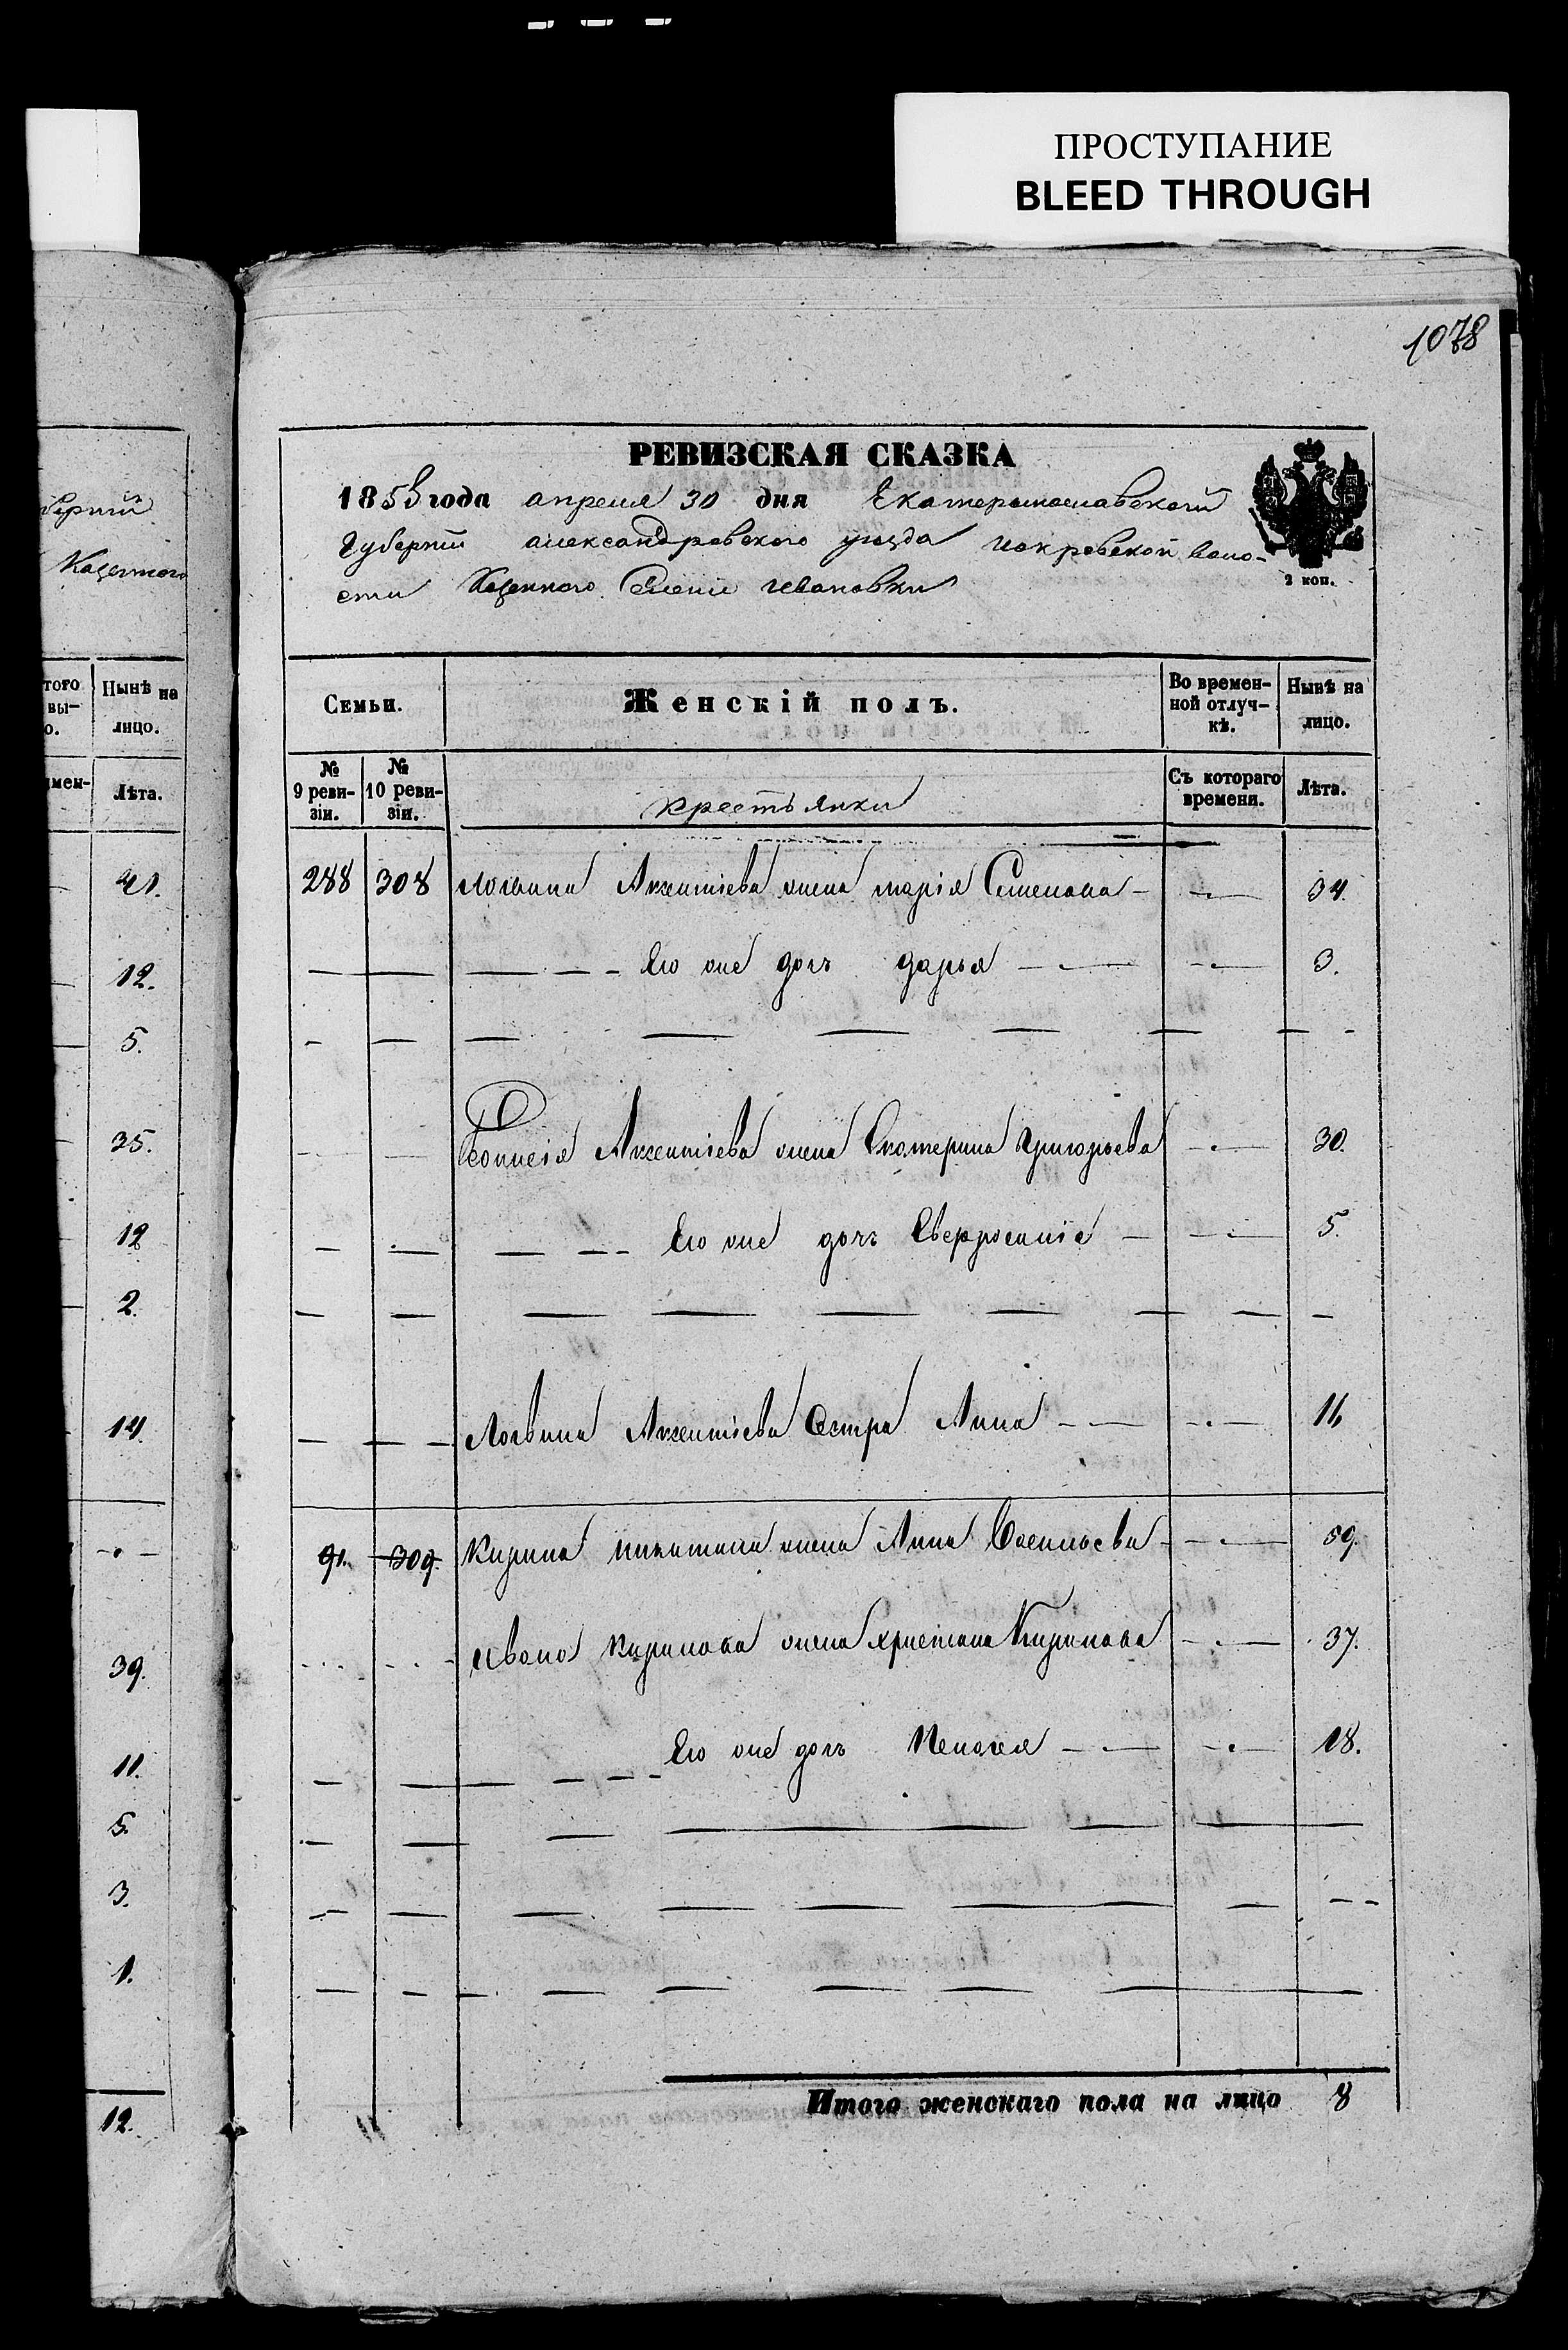 ПРОСТУПАНИЕ
BLEED THROUGH
1078
РЕВИЗСКАЯ СКАЗКА
1858 года апреля 30 дня Екатеринославской
Губерніи александровского уезда покровской воло-
сти Казенного Селенія ивановки
2 коп.
Семьи. Женскій полъ. Во времен-ной отлуч-кѣ. Нынѣ на лицо.
№ 9 реви-зіи. № 10 реви-зіи. крестьянки Съ котораго времени. Лѣта.
288 308 Логвина Аксентіева жена марія Степанова 34.
Его же дочь дарья 3.
Аксентіева жена Екатерина Григорьева 30.
Его же дочь Евфросинія 5.
Логвина Аксентіева Сестра Анна 16
91. 309. Кирила никитина жена Анна Васильева 59.
Ивана Кирилова жена христина Кирилова 37.
Его же дочь Пелагея 18.
Итого женскаго пола на лицо 8
берніи
Казенного
того
вы-
о.
Нынѣ на
лицо.
имен-
Лѣта.
41.
12.
5.
35.
12
2.
14.
39.
11.
5.
3.
1.
12.